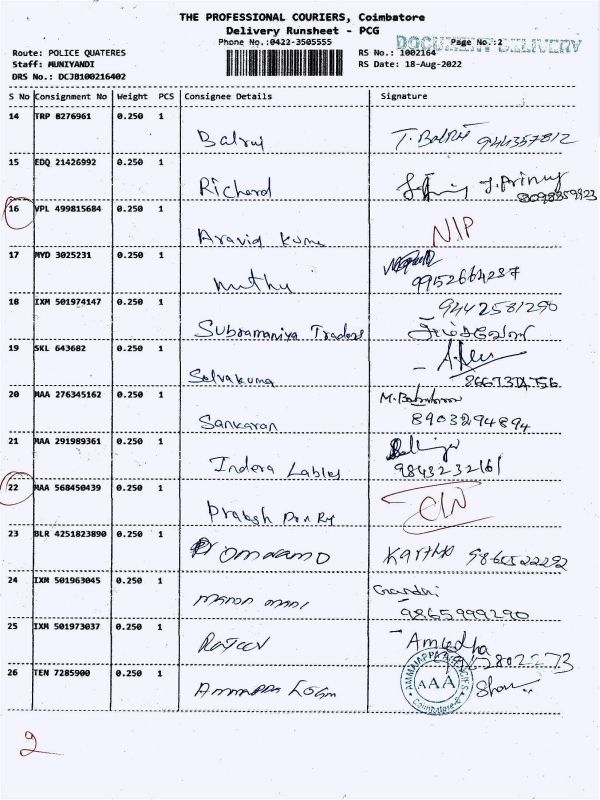 THE PROFESSIONAL COURIERS, Coimbatore
Delivery Runsheet - PCG
Phone No.:0422-3505555 Page No.:2
DOCUMENT DELIVERY
Route: POLICE QUATERES RS No.: 1002164
Staff: MUNIYANDI RS Date: 18-Aug-2022
DRS No.: DCJB100216402
S No Consignment No Weight PCS Consignee Details Signature
14 TRP 8276961 0.250 1
Balraj T. Balraj 944357812
15 EDQ 21426992 0.250 1
Richard
16 VPL 499815684 0.250 1
Aravid Kuma NIP
17 MYD 3025231 0.250 1
Muthu 9952664237
18 IXM 501974147 0.250 1 9442581290
Subramaniya Traders
19 SKL 643682 0.250 1
Selvakuma
20 MAA 276345162 0.250 1
Sankaran 8903294894
21 MAA 291989361 0.250 1
Indera Lables 9843232161
22 MAA 568450439 0.250 1
Prakash
23 BLR 4251823890 0.250 1
Karthi 9860522292
24 IXM 501963045 0.250 1
Gandhi
9865999290
25 IXM 501973037 0.250 1
Rajeev Amudha
26 TEN 7285900 0.250 1
AAA
Coimbatore
2